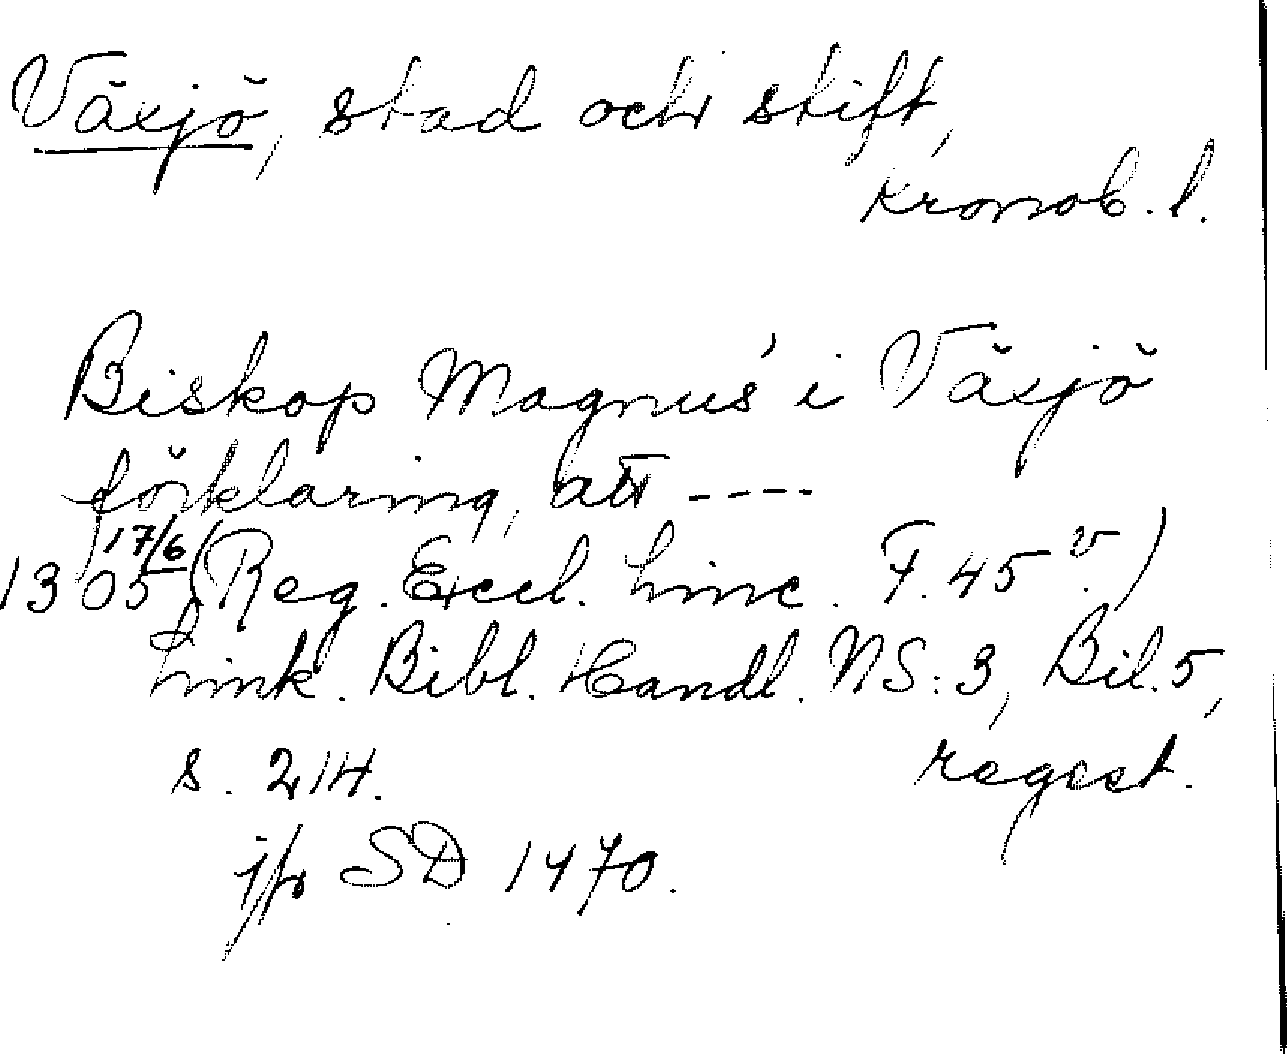 Växjö, stad och stift,
Kronob. l.
Biskop Magnus' i Växjö
förklaring, att ----
1305 17/6 (Reg. Eccl. Linc. F. 45 v.)
Link. Bibl. Handl. NS: 3, Bil. 5,
s. 214. regest.
jfr SD 1470.